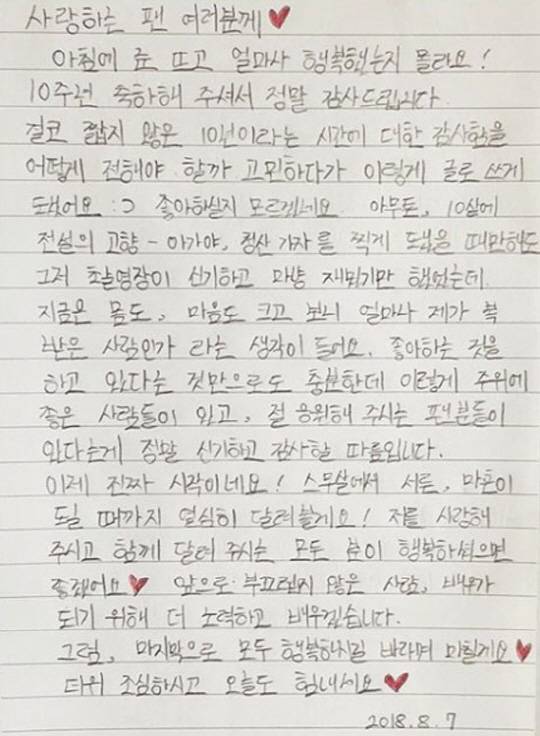 사랑하는 팬 여러분께♥
아침에 눈 뜨고 얼마나 행복했는지 몰라요!
10주년 축하해 주셔서 정말 감사드립니다.
결코 짧지 않은 10년이라는 시간에 대한 감사함을
어떻게 전해야 할까 고민하다가 이렇게 글로 쓰게
됐어요 :) 좋아하실지 모르겠네요. 아무튼, 10살에
전설의 고향 - 아가야, 청산 가자를 찍게 됐을 때만해도
그저 촬영장이 신기하고 마냥 재밌기만 했었는데
지금은 몸도, 마음도 크고 보니 얼마나 제가 복
받은 사람인가 라는 생각이 들어요. 좋아하는 것을
하고 있다는 것만으로도 충분한데 이렇게 주위에
좋은 사람들이 있고, 절 응원해 주시는 팬분들이
있다는게 정말 신기하고 감사할 따름입니다.
이제 진짜 시작이네요! 스무살에서 서른, 마흔이
될 때까지 열심히 달려볼게요! 저를 사랑해
주시고 함께 달려 주시는 모두 분이 행복하셨으면
좋겠어요♥ 앞으로 부끄럽지 않은 사람, 배우가
되기 위해 더 노력하고 배우겠습니다.
그럼, 마지막으로 모두 행복하시길 바라며 마칠게요♥
더위 조심하시고 오늘도 힘내세요♥
2018.8.7